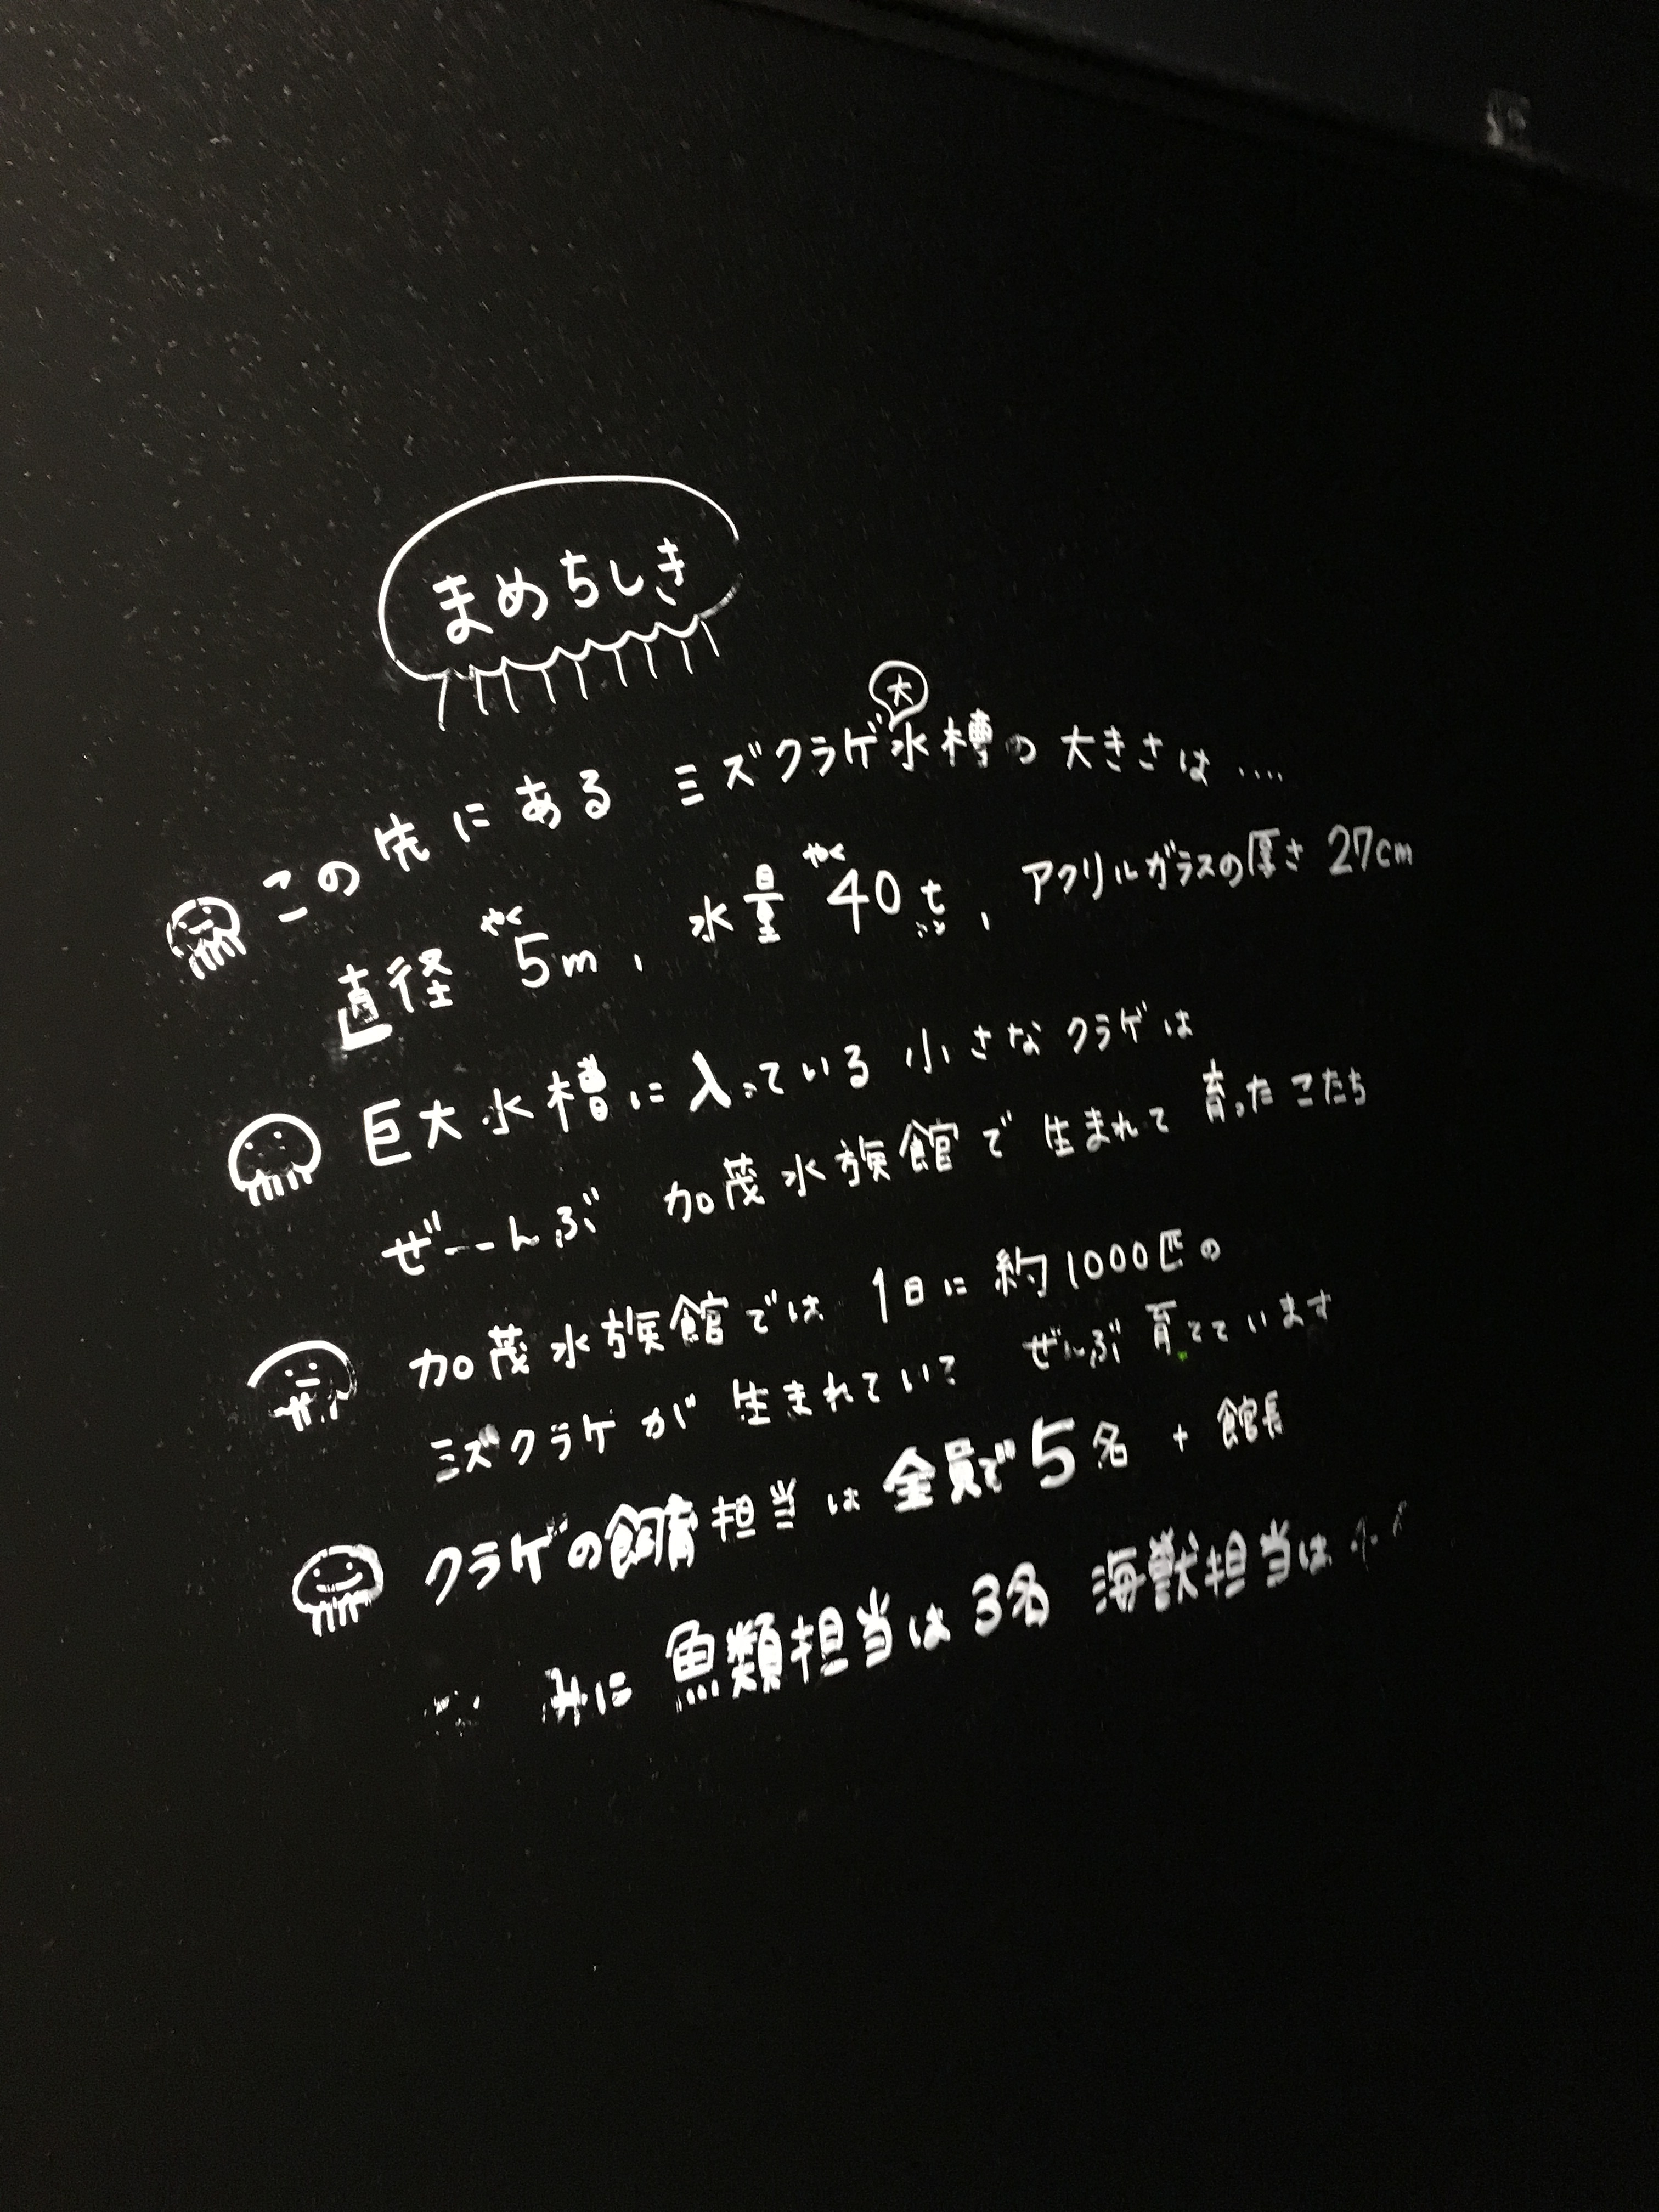 まめちしき
この先にある ミズクラゲ大水槽の 大きさは‥‥
直径 やく5m、水量 やく40t、アクリルガラスの厚さ 27cm
巨大水槽に入っている 小さな クラゲは
ぜーーんぶ 加茂水族館で 生まれて 育ったこたち
加茂水族館では 1日に 約1000匹の
ミズクラゲが 生まれていて ぜ〜んぶ 育てています
クラゲの飼育担当は 全員で5名 + 館長
みに 魚類担当は 3名 海獣担当は